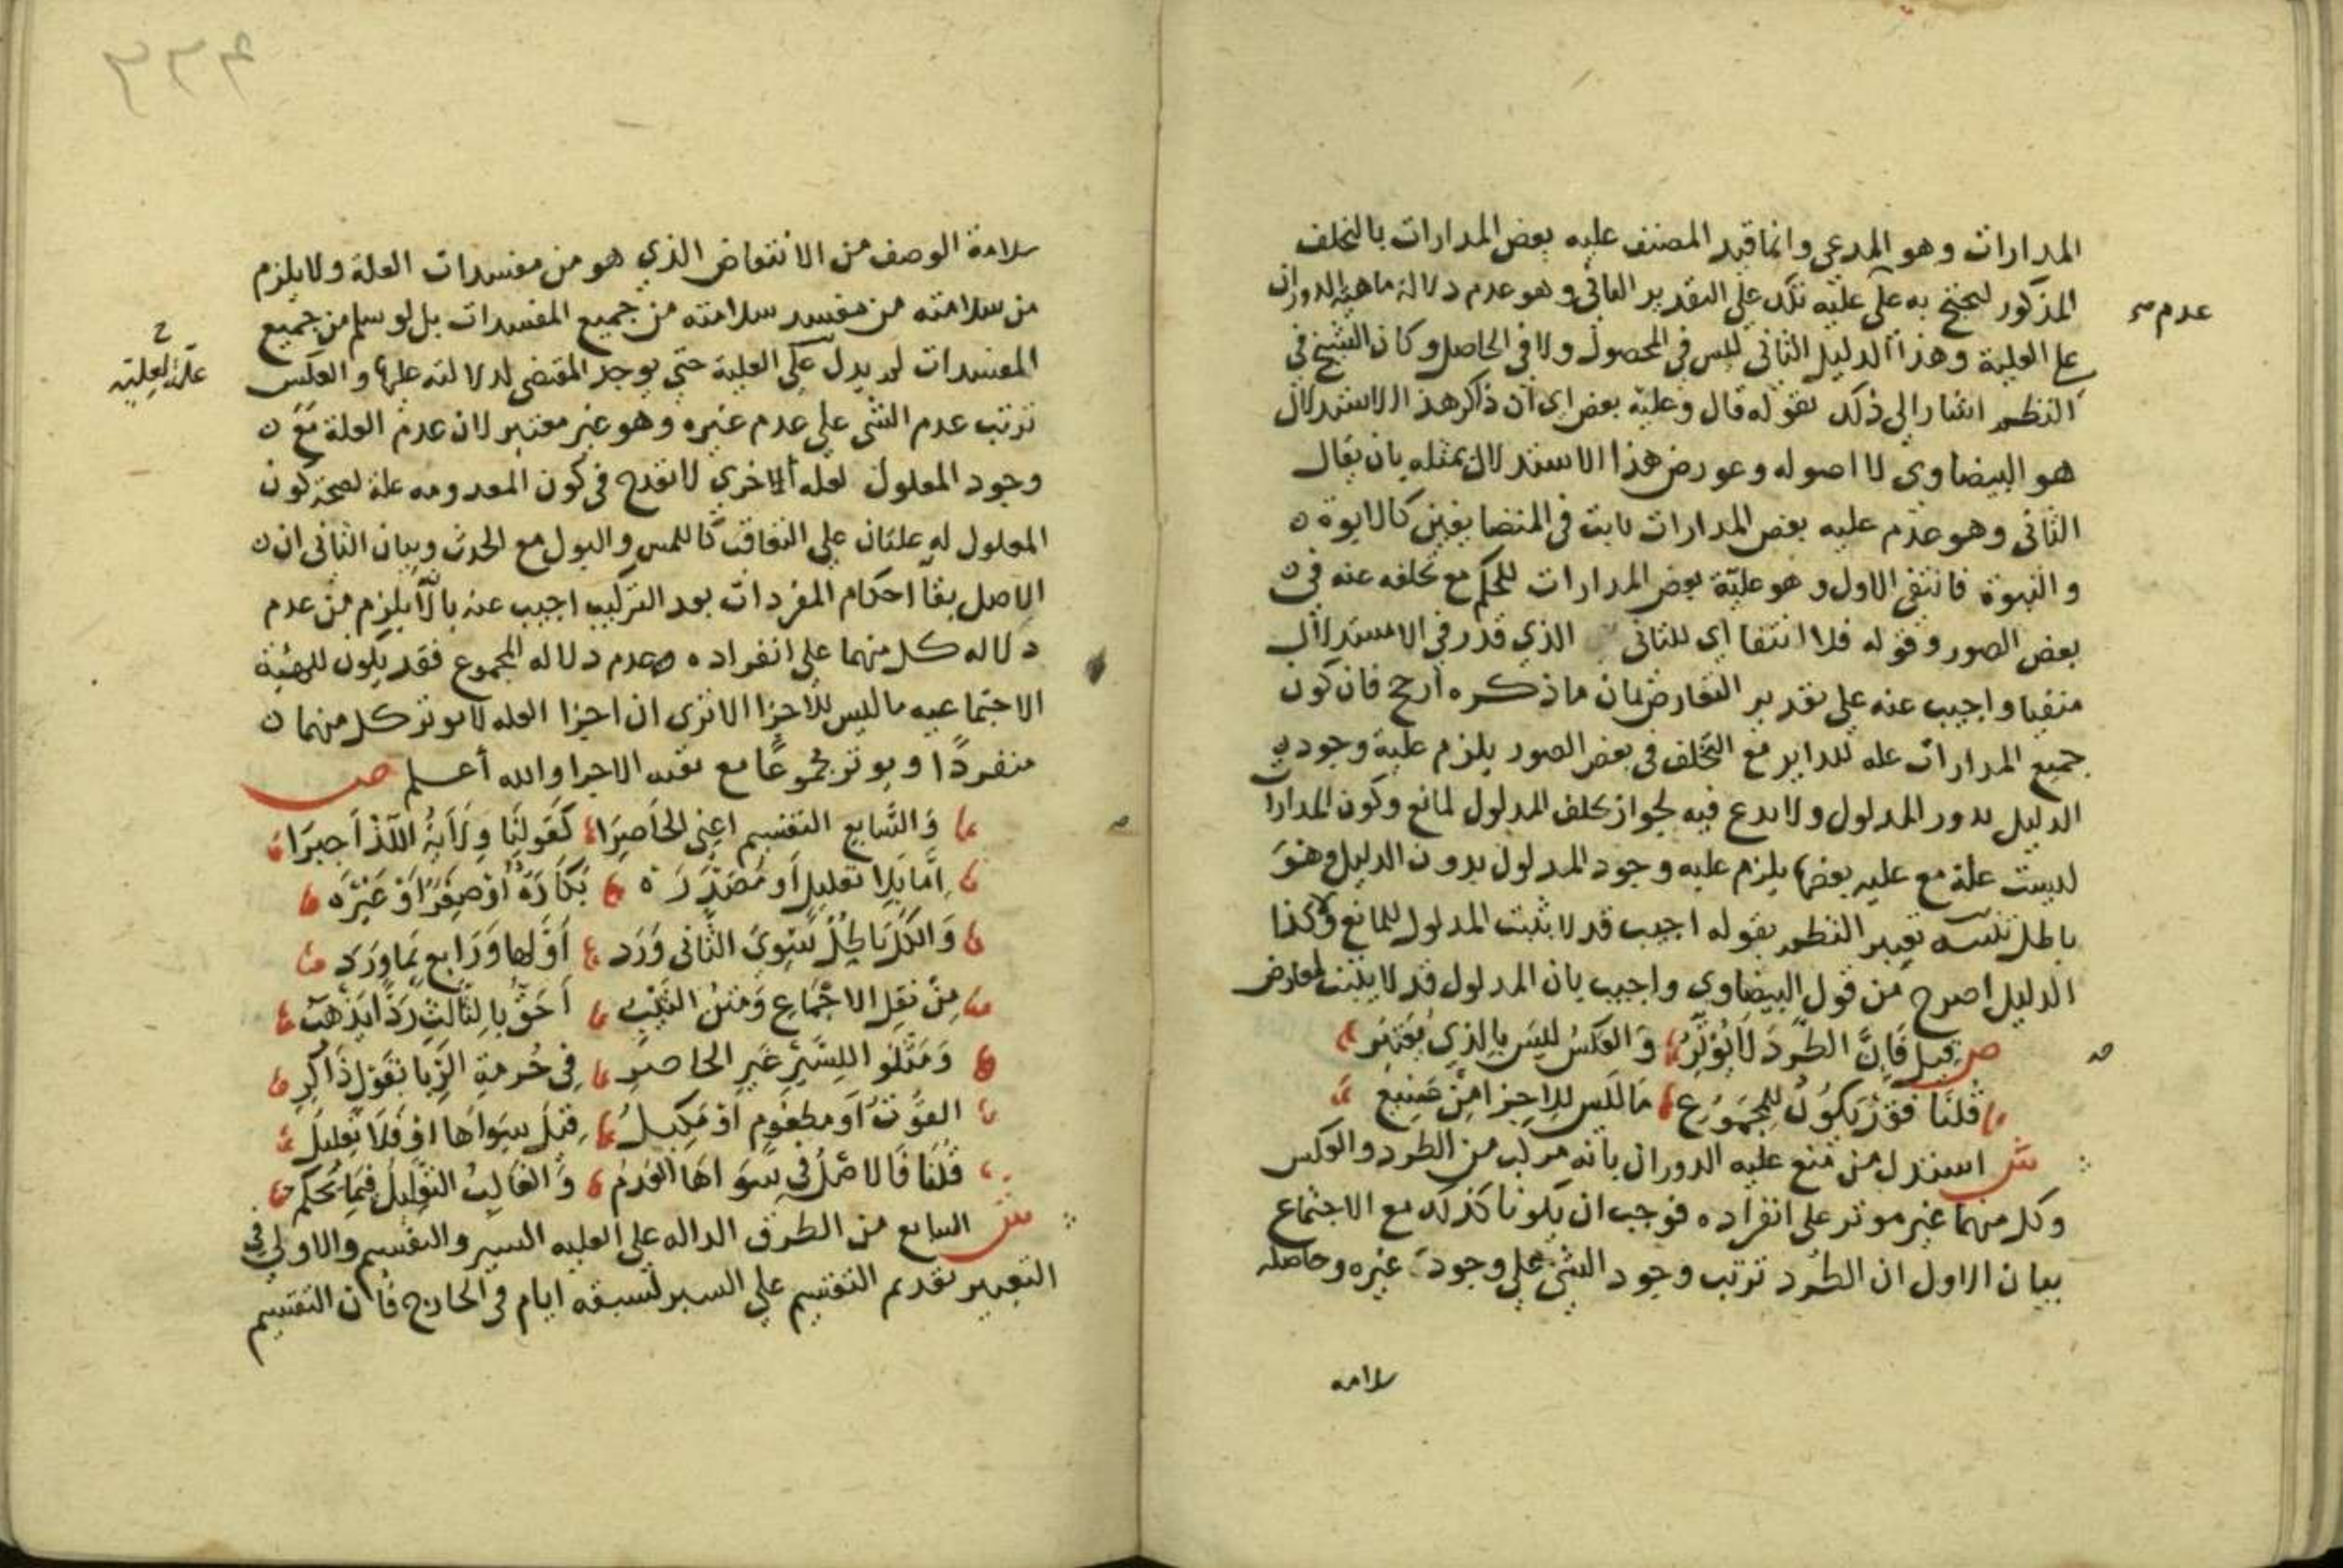 المدارات وهو المدعى وانما قيد المصنف عليه بعض المدارات بالتخلف
المذكور ليحتج به على علية تلك على التقدير الثاني وهو عدم دلالة ماهية الدوران
عدم صح
على العلية وهذا الدليل الثاني ليس في المحصول ولا في الحاصل وكان الشيخ في
النظم اشار الى ذلك بقوله قال وعلية بعض اي ان ذاكر هذا الاستدلال
هو البيضاوي لا اصوله وعورض هذا الاستدلال بمثله بان يقال
الثاني وهو عدم عليه بعض المدارات ثابت في المتضايفين كالابوة
والبنوة فانتفى الاول وهو علية بعض المدارات للحكم مع تخلفه عنه في
بعض الصور وقوله فلا انتفا اي للثاني الذي قدر في الاستدلال
منفيا واجيب عنه على تقدير التعارض بان ما ذكره ارجح فان كون
جميع المدارات عله للداير مع التخلف في بعض الصور يلزم علية وجود
الدليل بدور المدلول ولا بدع فيه لجواز تخلف المدلول لمانع وكون المدارا
ليست علة مع عليه بعضها يلزم عليه وجود المدلول بدون الدليل وهو
باطل تعبير النظم بقوله اجيب قد لا يثبت المدلول للمانع وكذا
الدليل اصرح من قول البيضاوي واجيب بان المدلول قد لا يثبت لمعارض
ص قيل فان الطرد لا يؤثر والعكس ليس بالذي يعتبر
قلنا فقد يكون للمجموع ما ليس للاجزا من
ش استدل من منع عليه الدوران بانه مركب من الطرد والعكس
وكل منهما غير موثر على انفراده فوجب ان يكونا كذلك مع الاجتماع
بيان الاول ان الطرد ترتب وجود الشي على وجود غيره وحاصله
سلامه
سلامة الوصف من الانتقاض الذي هو من مفسدات العلة ولا يلزم
من سلامته من مفسد سلامته من جميع المفسدات بل لو سلم من جميع
المفسدات لم يدل على العلية حتى يوجد المقتضى لدلالته عليها والعكس
ترتب عدم الشي على عدم غيره وهو غير معتبر لان عدم العلة مع
وجود المعلول لعله الاخرى لا تقدح في كون المعدومه علة لصحة كون
المعلول له علتان على التعاقب كاللمس والبول مع الحدث وبيان الثاني ان
الاصل بقا احكام المفردات بعد التركيب اجيب عنه بالا يلزم من عدم
دلاله كل منهما على انفراده عدم دلاله المجموع فقد يكون للهيئة
الاجتماعيه ما ليس للاجزا الا ترى ان اجزا العله لا يوثر كل منهما
منفردا ويوثر مجموعا مع بقيه الاجزا والله أعلم ص
والسابع التقسيم اعني الحاصرا كقولنا ولاية اللذ اجبرا
اما بلا تعليل او مصدره بكارة او صغر او غيره
والكل باطل سوى الثاني ورد اولها ورابع بما ورد
من نقل الاجماع ومتن الثيب احق بالثالث ردا يذهب
ومثلوا للسير غير الحاصر في حرمة الربا بقول ذاكر
القوت او مطعوم او مكيل قيل سواها او فلا تعليل
قلنا فالاصل في سواها العدم والغالب التعليل فيما يحكم
ش السابع من الطرق الداله على العليه السير والتقسيم والاولى في
التعبير تقديم التقسيم على السبر لسبقه اياه في الخارج فان التقسيم